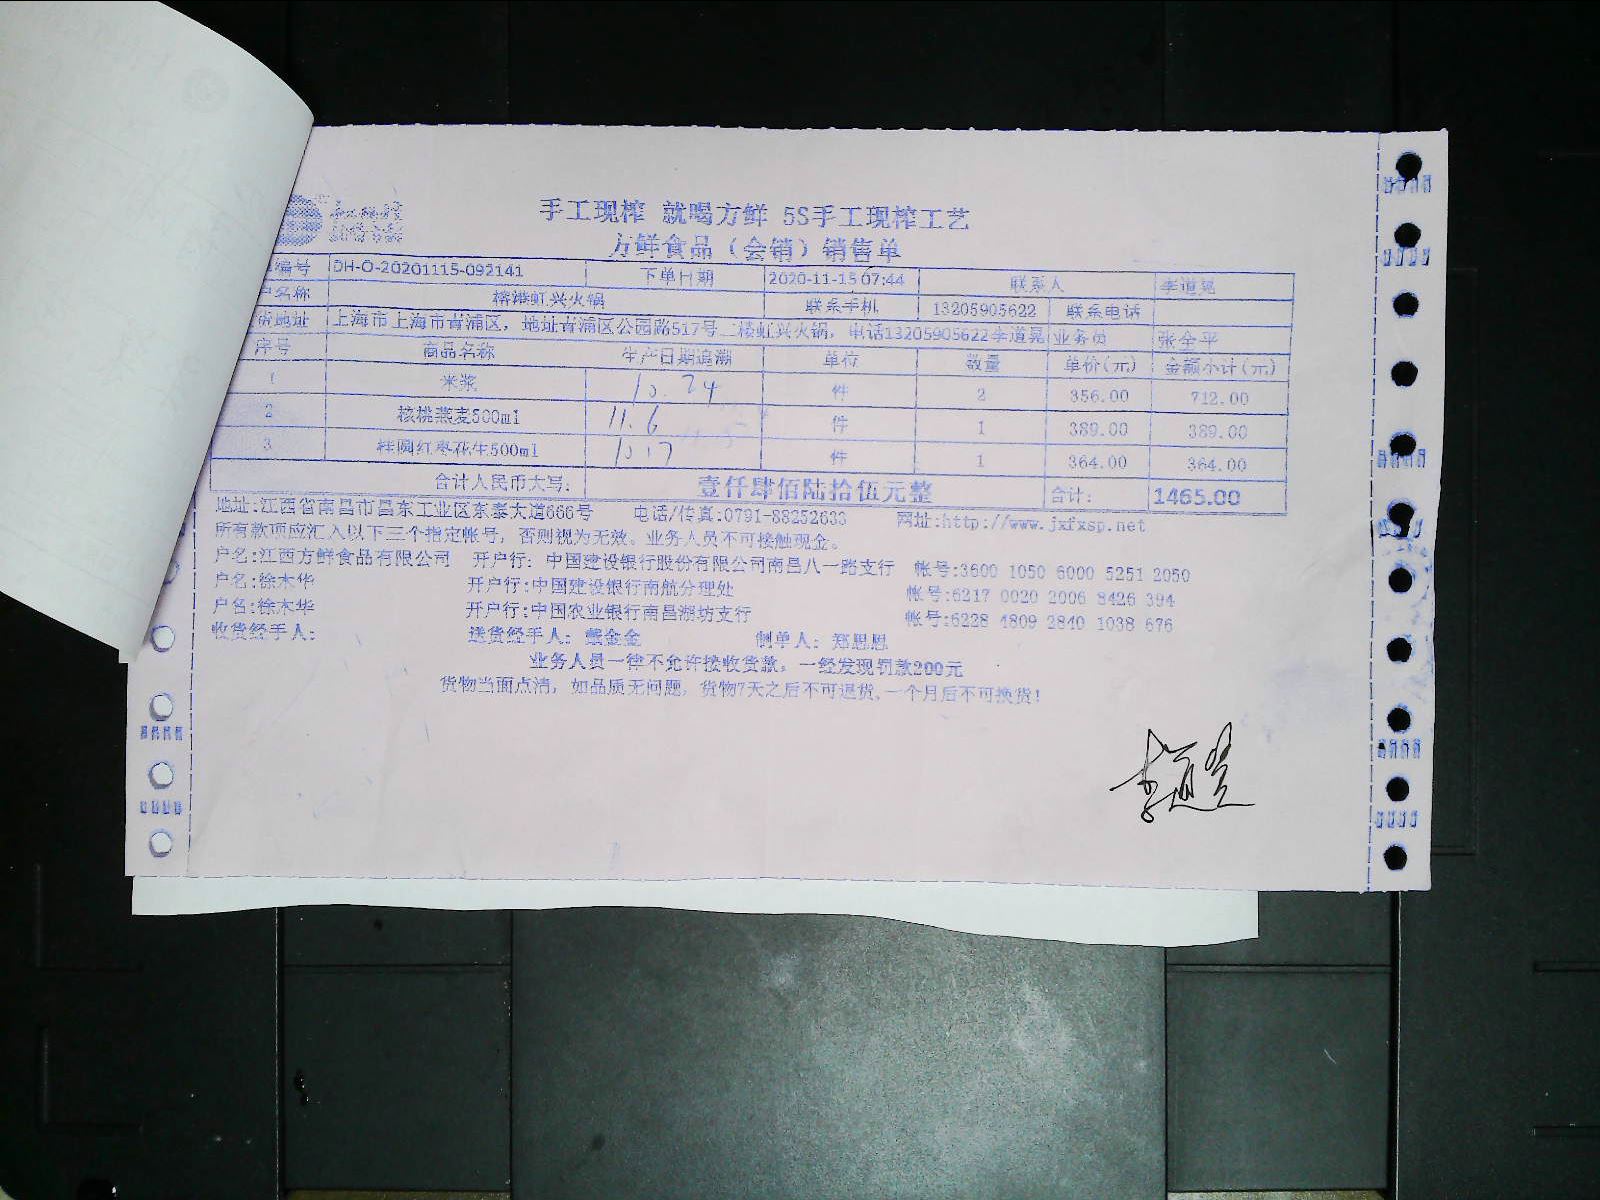 手工现榨 就喝方鲜 5S手工现榨工艺
方鲜食品（会销）销售单
编号 DH-O-20201115-092141 下单日期 2020-11-15 07:44 联系人 李道晃
户名称 榕港虹兴火锅 联系手机 13205905622 联系电话
货地址 上海市上海市青浦区，地址青浦区公园路517号二楼虹兴火锅，电话13205905622李道晃 业务员 张全平
序号 商品名称 生产日期追溯 单位 数量 单价(元) 金额小计(元)
1 米浆 10.24 件 2 356.00 712.00
2 核桃燕麦500ml 11.6 件 1 389.00 389.00
3 桂圆红枣花生500ml 10.17 件 1 364.00 364.00
合计人民币大写： 壹仟肆佰陆拾伍元整 合计： 1465.00
地址:江西省南昌市昌东工业区东泰大道666号 电话/传真:0791-88252633 网址:http://www.jxfxsp.net
所有款项应汇入以下三个指定帐号，否则视为无效。业务人员不可接触现金。
户名:江西方鲜食品有限公司 开户行: 中国建设银行股份有限公司南昌八一路支行 帐号:3600 1050 6000 5251 2050
户名:徐木华 开户行:中国建设银行南航分理处 帐号:6217 0020 2006 8426 394
户名:徐木华 开户行:中国农业银行南昌湖坊支行 帐号:6228 4809 2840 1038 676
收货经手人： 送货经手人：戴金金 制单人：郑思思
业务人员一律不允许接收货款，一经发现罚款200元
货物当面点清，如品质无问题，货物7天之后不可退货,一个月后不可换货！